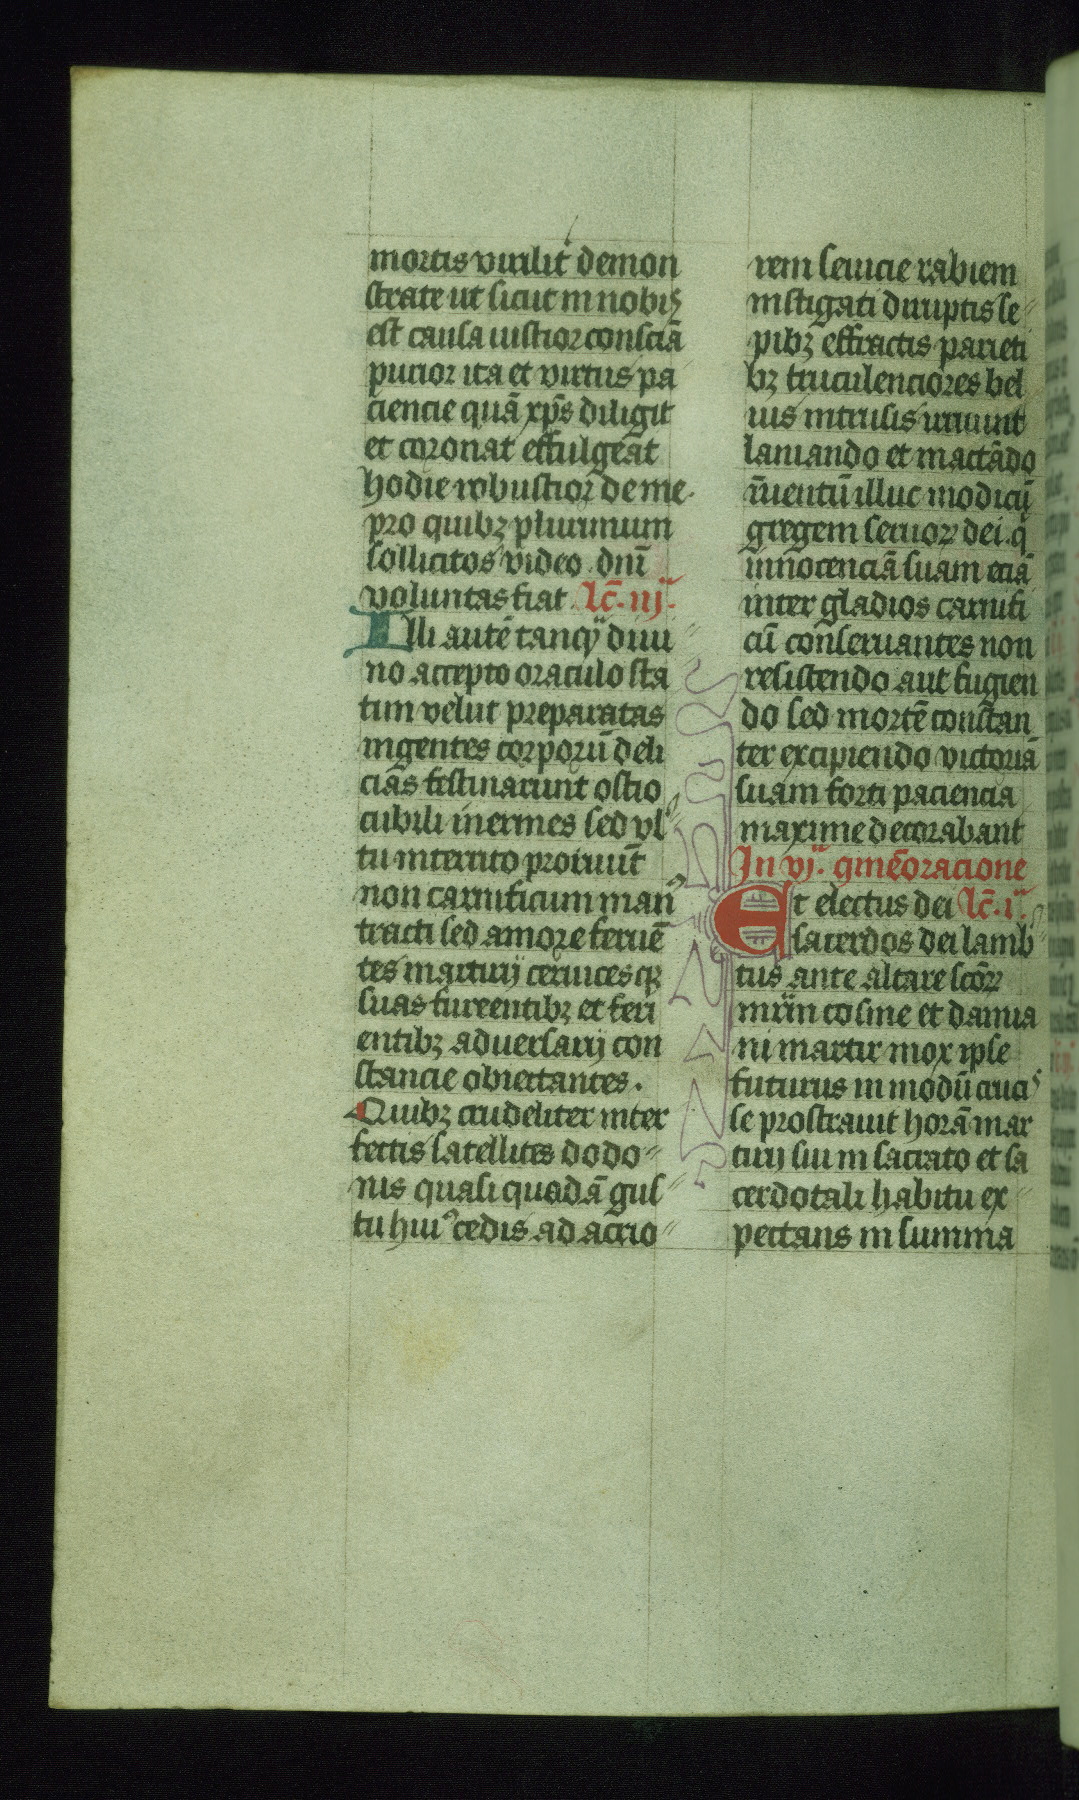 mortis virilit̉ demon
strate ut sicut in nobis
est causa iustior consciā
pucior ita et virtus pa
ciencie quā xp̄s diligit
et coronat effulgeat
hodie robustior de me.
pro quibꝫ plurimum
sollicitos video. dnī
voluntas fiat. lc̄. iij.
Illi autē tanqͣ diui
no accepto oraculo sta
tim velut preparatas
ingentes corporū deli
cias festinarunt ostio
cubili inermes sed vl
tu interrito proiuūt
non carnificum manꝰ
tracti sed amore feruē
tes martirij ceruicesqꝫ
suas fureentibꝫ et feri
entibꝫ aduersarij con
stancie obiectantes.
Quibꝫ crudeliter inter
fectis satellites dodo
nis quasi quodā gus
tu huiꝰ cedis ad acrio
rem seuicie rabiem
instigati diruptis se
pibꝫ effractis parieti
bꝫ truculenciores bel
uis intrusis irruunt
laniando et mactādo
illuc modicū
gregem seruoꝝ dei. q̄
innocenciā suam eciā
inter gladios carnifi
cū conseruantes non
resistendo aut fugien
do sed mortē constan
ter excipiendo victoriā
suam forti paciencia
maxime decorabant
In vj. ꝯmēoracione
Et electus dei lc̄. i.
sacerdos dei lamb
tus ante altare scōꝝ
mr̄m cosme et damia
ni martir mox ipse
futurus in modū cruci
se prostrauit horā mar
tirij sui in sacrato et sa
cerdotali habitu ex
pectans in summa